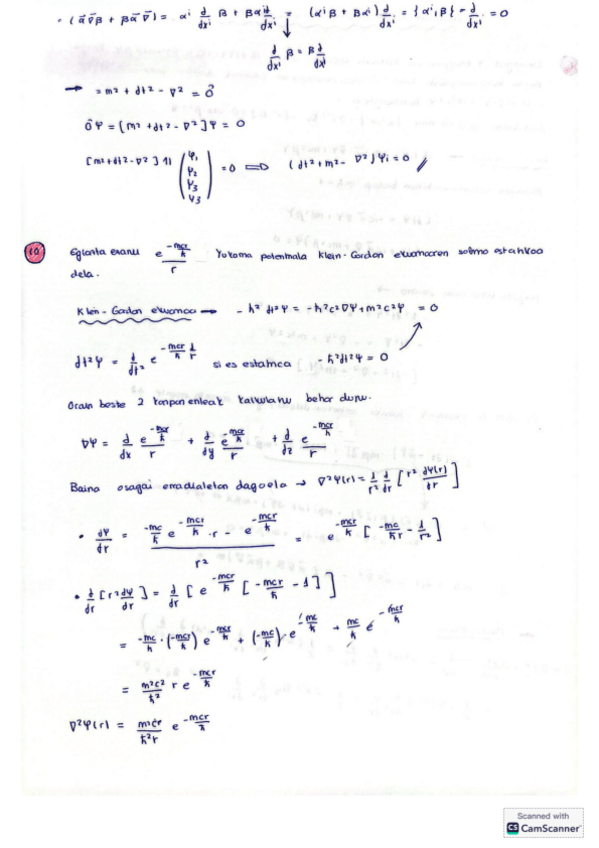 · (α⃗∇⃗β + βα⃗∇⃗) = αⁱ d/dxⁱ β + βαⁱ d/dxⁱ = (αⁱβ + βαⁱ) d/dxⁱ = {αⁱ, β} · d/dxⁱ = 0
d/dxⁱ β = β d/dxⁱ
→ = m² + dt² - ∇² = Ô
ÔΨ = [m² + dt² - ∇²]Ψ = 0
[m² + dt² - ∇²] 1 (Ψ₁ Ψ₂ Ψ₃ Ψ₃) = 0 ⟹ (dt² + m² - ∇²)Ψi = 0
10 e^(-mcr/ħ)/r Yukawa potentziala Klein-Gordon ekuazioaren
dela.
Klein-Gordon ekuazioa → -ħ² dt²Ψ = -ħ²c²∇Ψ + m²c²Ψ = 0
dt²Ψ = d/dt² e^(-mcr/ħ) 1/r -ħ²dt²Ψ = 0
Orain beste 2 konponenteak kalkulatu behar ditu.
∇Ψ = d/dx e^(-mcr/ħ)/r + d/dy e^(-mcr/ħ)/r + d/dz e^(-mcr/ħ)/r
Baina osagai erradialetan dagoela → ∇²Ψ(r) = 1/r² d/dr [r² dΨ(r)/dr]
· dΨ/dr = (-mc/ħ e^(-mcr/ħ) · r - e^(-mcr/ħ))/r² = e^(-mcr/ħ) [-mc/ħr - 1/r²]
· d/dr [r² dΨ/dr] = d/dr [e^(-mcr/ħ) [-mcr/ħ - 1]]
= -mc/ħ · (-mcr/ħ) e^(-mcr/ħ) + (-mc/ħ) · e^(-mc/ħ) + mc/ħ e^(-mcr/ħ)
= m²c²/ħ² r e^(-mcr/ħ)
∇²Ψ(r) = m²c²/ħ²r e^(-mcr/ħ)
Scanned with
CS CamScanner